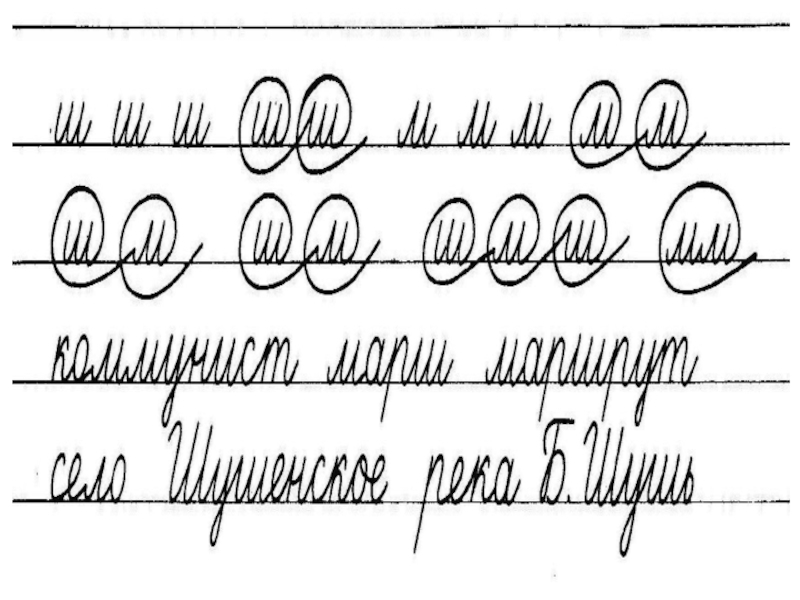 ш ш ш ш ш м м м м м
ш м ш м ш м ш мм
коммунист марш маршрут
село Шушенское река Б. Шушь